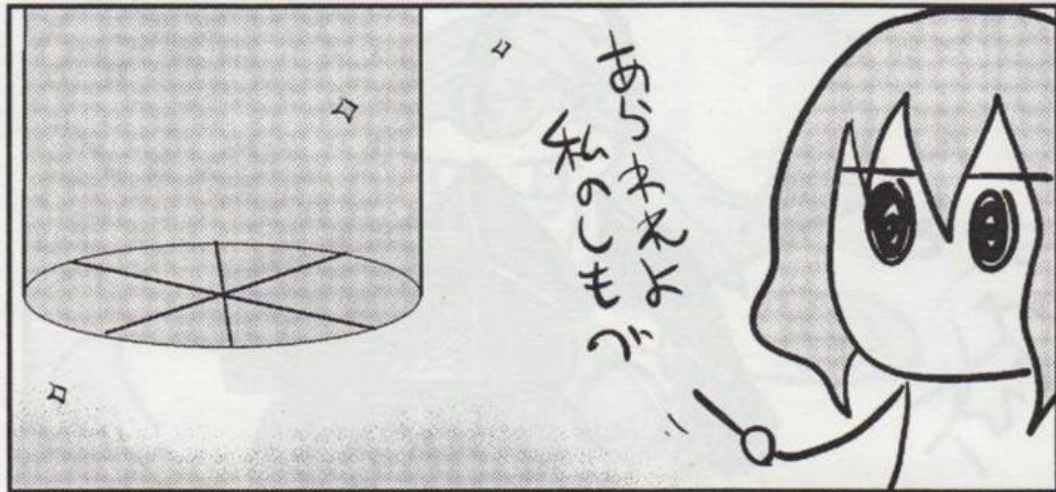 あらわれよ
私のしもづ